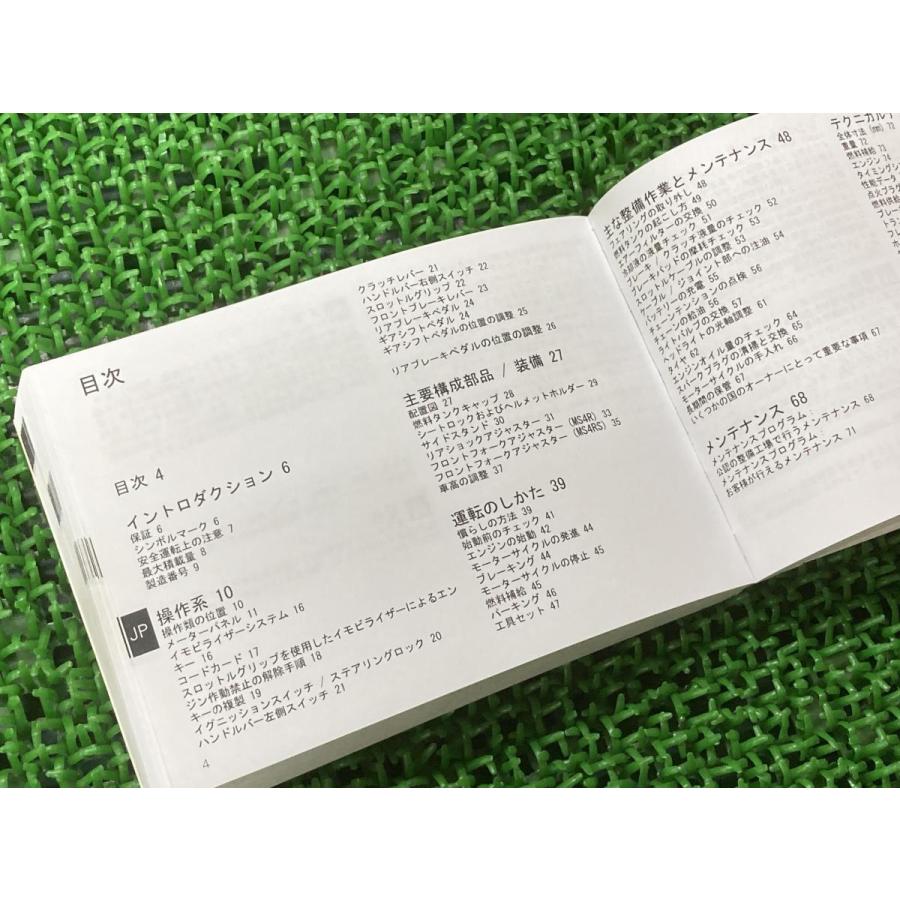 目次
目次 4
イントロダクション 6
保証 6
シンボルマーク 6
安全運転上の注意 7
最大積載量 8
製造番号 9
JP
操作系 10
操作類の位置 10
メーターパネル 11
イモビライザーシステム 16
キー 16
コードカード 17
スロットルグリップを使用したイモビライザーによるエン
ジン作動禁止の解除手順 18
キーの複製 19
イグニッションスイッチ / ステアリングロック 20
ハンドルバー左側スイッチ 21
4
クラッチレバー 21
ハンドルバー右側スイッチ 22
スロットルグリップ 22
フロントブレーキレバー 23
リアブレーキペダル 24
ギアシフトペダル 24
ギアシフトペダルの位置の調整 25
リアブレーキペダルの位置の調整 26
主要構成部品 / 装備 27
配置図 27
燃料タンクキャップ 28
シートロックおよびヘルメットホルダー 29
サイドスタンド 30
リアショックアジャスター 31
フロントフォークアジャスター (MS4R) 33
フロントフォークアジャスター (MS4RS) 35
車高の調整 37
運転のしかた 39
慣らしの方法 39
始動前のチェック 41
エンジンの始動 42
モーターサイクルの発進 44
ブレーキング 44
モーターサイクルの停止 45
燃料補給 45
パーキング 46
工具セット 47
主な整備作業とメンテナンス 48
フェアリングの取り外し 48
燃料タンクの起こし方 49
エアーフィルターの交換 50
冷却液の液量チェック 51
ブレーキ / クラッチ液量のチェック 52
ブレーキパッドの摩耗チェック 53
スロットルケーブルの調整 53
ケーブル / ジョイント部への注油 54
バッテリーの充電 55
チェーンテンションの点検 56
チェーンの給油 56
ライトバルブの交換 57
ヘッドライトの光軸調整 61
タイヤ 62
エンジンオイル量のチェック 64
スパークプラグの清掃と交換 65
モーターサイクルの手入れ 66
長期間の保管 67
いくつかの国のオーナーにとって重要な事項 67
メンテナンス 68
メンテナンスプログラム
公認の整備工場で行うメンテナンス 68
メンテナンスプログラム
お客様が行えるメンテナンス 71
テクニカル
全体寸法 (mm) 72
重量 72
燃料補給 73
エンジン 74
タイミング
性能データ
点火プラグ
燃料供給
ブレー
トラン
フレ
ホ